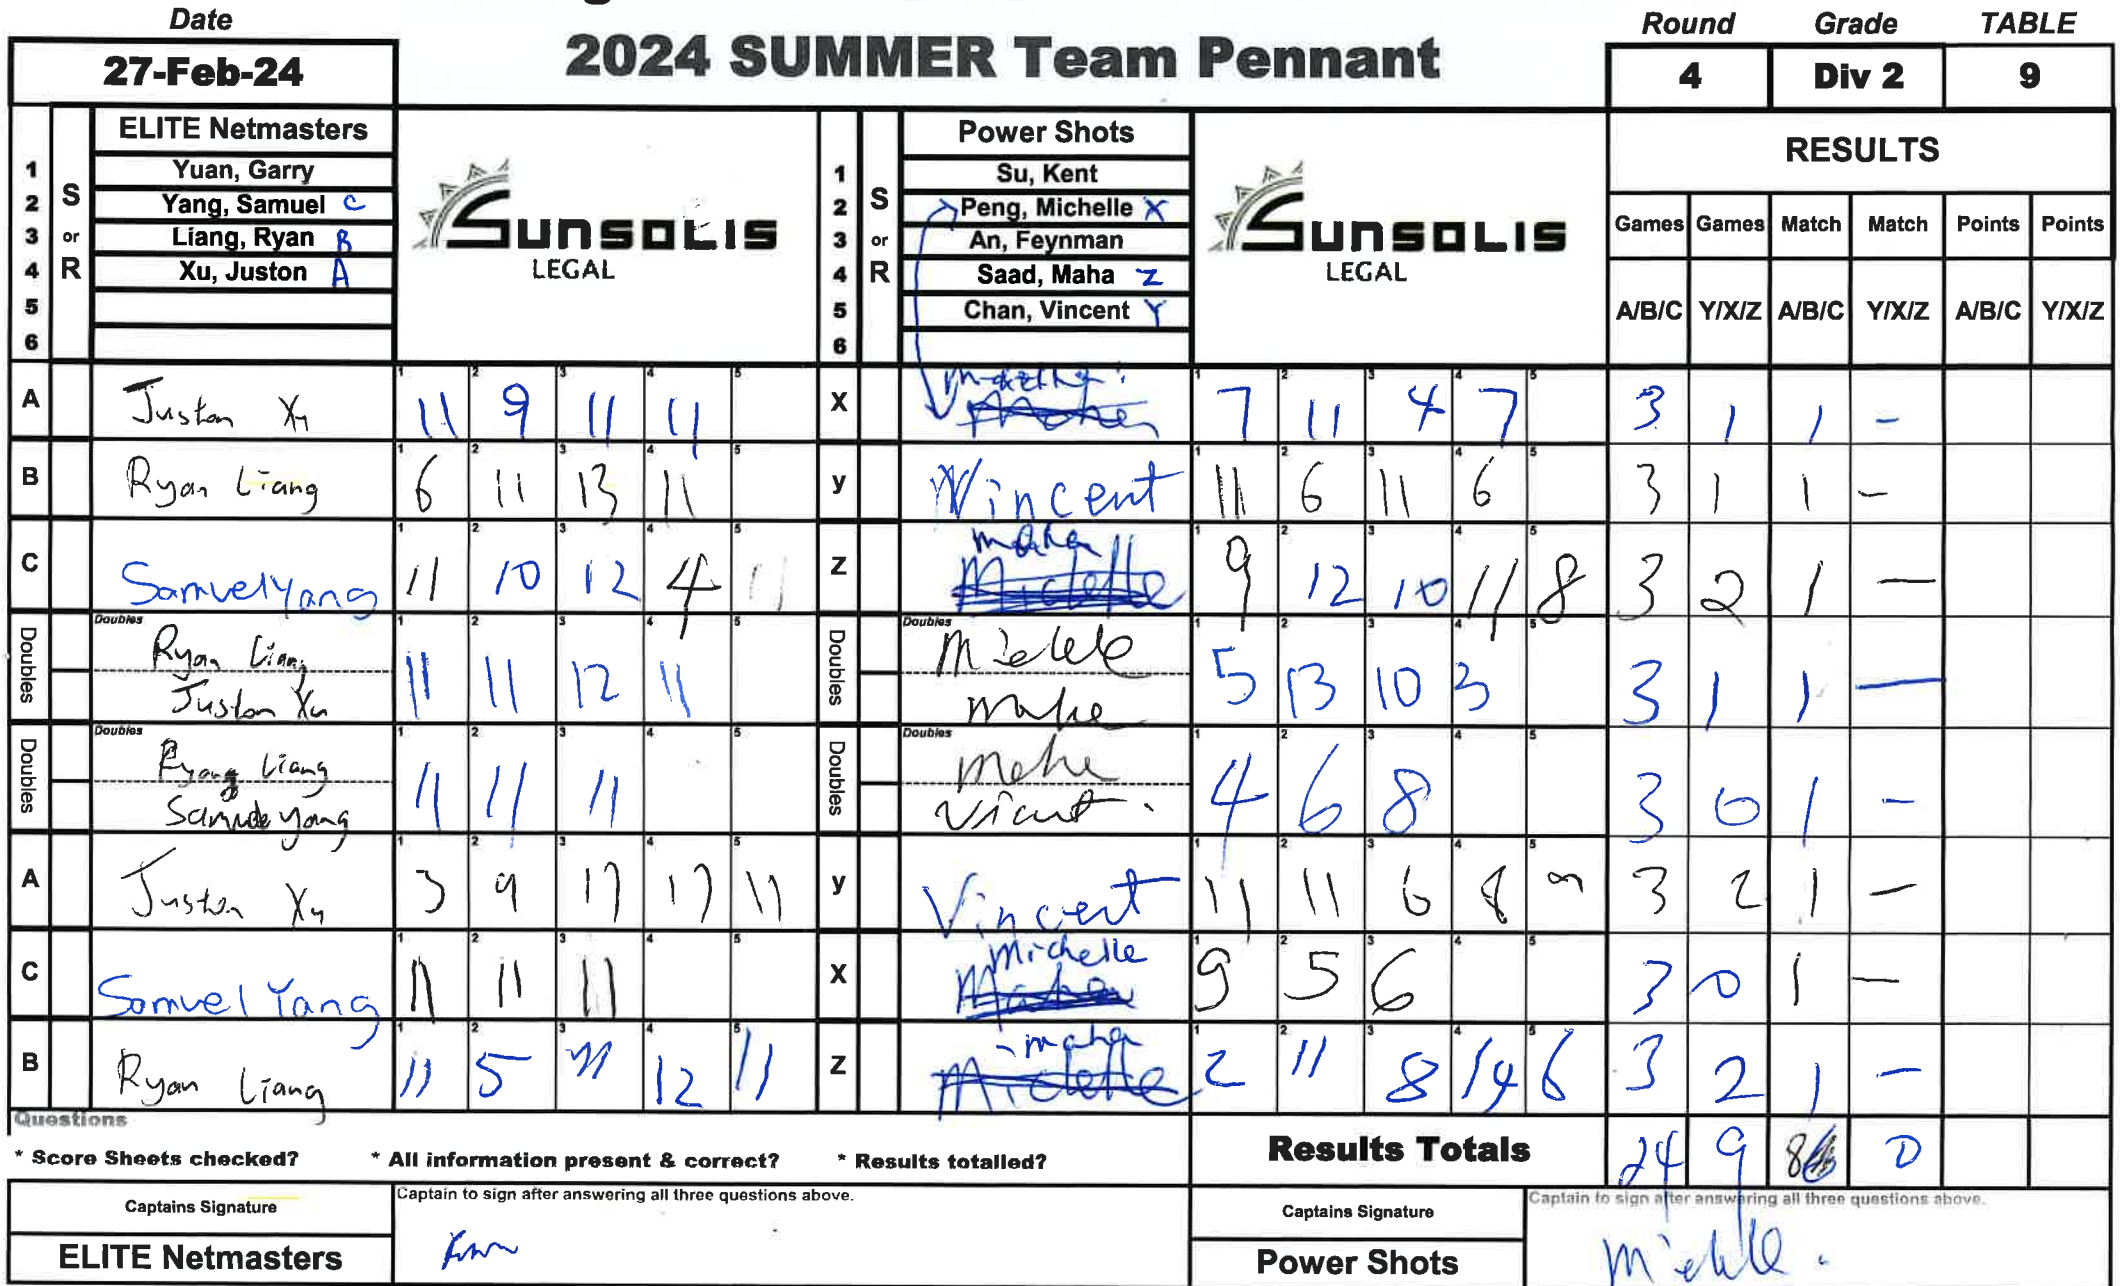 Date
27-Feb-24
2024 SUMMER Team Pennant
Round Grade TABLE
4 Div 2 9
ELITE Netmasters
1 Yuan, Garry
2 Yang, Samuel C
3 Liang, Ryan B
4 Xu, Juston A
5
6
S or R
SUNSOLIS
LEGAL
Power Shots
1 Su, Kent
2 Peng, Michelle X
3 An, Feynman
4 Saad, Maha Z
5 Chan, Vincent Y
6
S or R
SUNSOLIS
LEGAL
RESULTS
Games Games Match Match Points Points
A/B/C Y/X/Z A/B/C Y/X/Z A/B/C Y/X/Z
A Juston Xu 11 9 11 11 X 7 11 4 7 3 1 1 -
B Ryan Liang 6 11 13 11 y Vincent 11 6 11 6 3 1 1 -
C Samuel Yang 11 10 12 4 11 Z maha 9 12 10 11 8 3 2 1 -
Doubles Ryan Liang
Juston Xu 11 11 12 11 Doubles Michelle
Maha 5 13 10 3 3 1 1 -
Doubles Ryang Liang
Samuel Yang 11 11 11 Doubles Maha
Vincent 4 6 8 3 0 1 -
A Juston Xu 3 9 11 11 11 y Vincent 11 11 6 8 3 2 1 -
C Samuel Yang 11 11 11 X Michelle 9 5 6 3 0 1 -
B Ryan Liang 11 5 11 12 11 Z maha 2 11 8 14 6 3 2 1 -
Questions
* Score Sheets checked? * All information present & correct? * Results totalled?
Results Totals 24 9 8 0
Captains Signature
Captain to sign after answering all three questions above.
ELITE Netmasters
Captains Signature
Captain to sign after answering all three questions above.
Power Shots
Michelle.